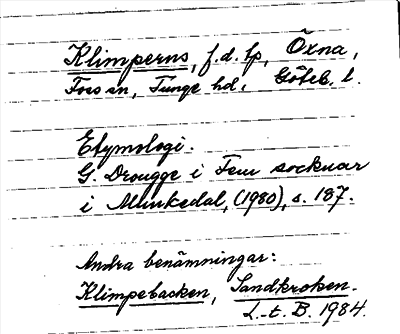 Klimperns, f.d. lp, Öxna,
Foss sn, Tunge hd. Göteb. l.
Etymologi.
G. Drougge i Fem socknar
i Munkedal, (1980), s. 187.
Andra benämningar:
Klimpebacken, Sandkroken.
L.-t. B. 1984.